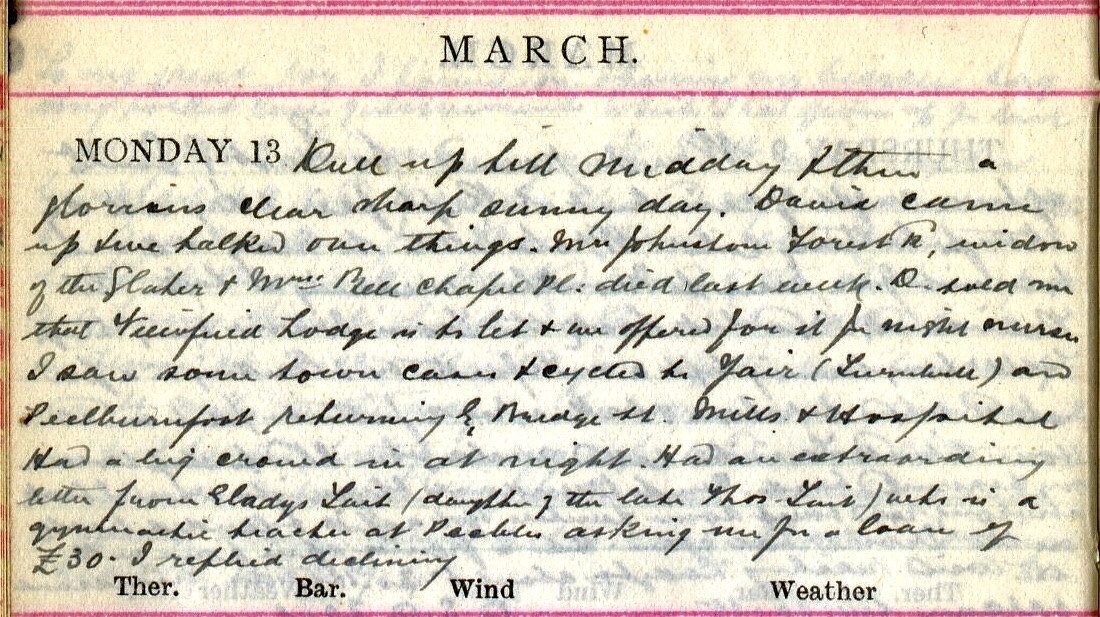 MARCH.
MONDAY 13 Dull up till midday & then a
glorious clear sharp sunny day. Davie came
up & we talked over things. Mrs Johnstone Forest R, widow
of the Slater & Mrs Bell Chapel Pl: died last week. D. told me
that Lodge is to let & we offered for it for night nurses
I saw some town cases & cycled to Yair (Turnbull) and
Peelburnfoot returning by Bridge St. Mills & Hospital
Had a big crowd in at night. Had an extraordinary
letter from Gladys Tait (daughter of the late Thos Tait) who is a
gymnastic teacher at Peebles asking me for a loan of
£30. I replied declining
Ther. Bar. Wind Weather